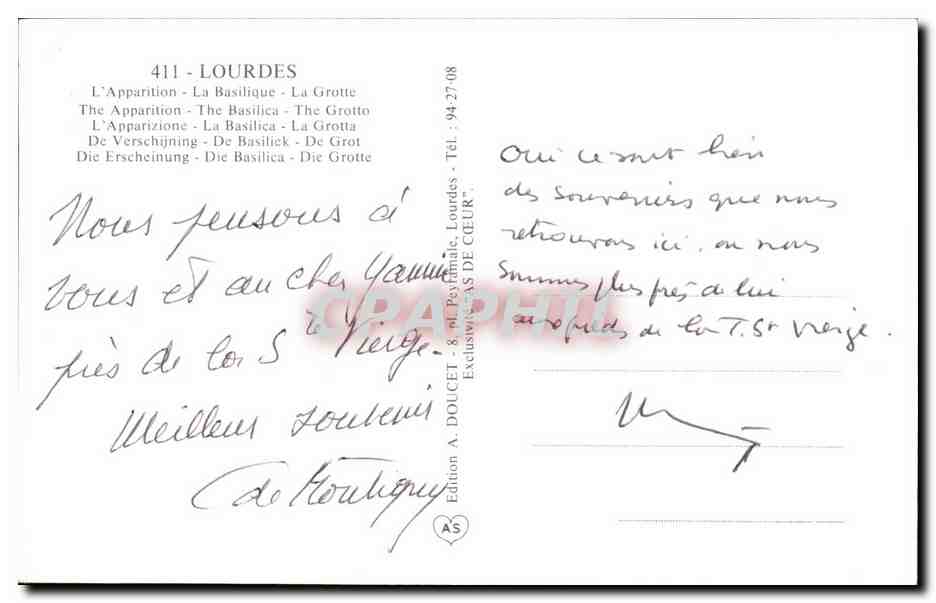 411 - LOURDES
L'Apparition - La Basilique - La Grotte
The Apparition - The Basilica - The Grotto
L'Apparizione - La Basilica - La Grotta
De Verschijning - De Basiliek - De Grot
Die Erscheinung - Die Basilica - Die Grotte
Nous pensons à
vous et au cher Yannic
près de la Ste Vierge.
Meilleur souvenir
de Montigny
Edition A. DOUCET - 8, pl. Peyramale, Lourdes - Tél. : 94-27-08
Exclusivité "AS DE CŒUR".
AS
Oui ce sont bien
des souvenirs que nous
retrouvons ici, où nous
sommes plus près de lui
aux pieds de la T. Ste Vierge.
CPAPHIL